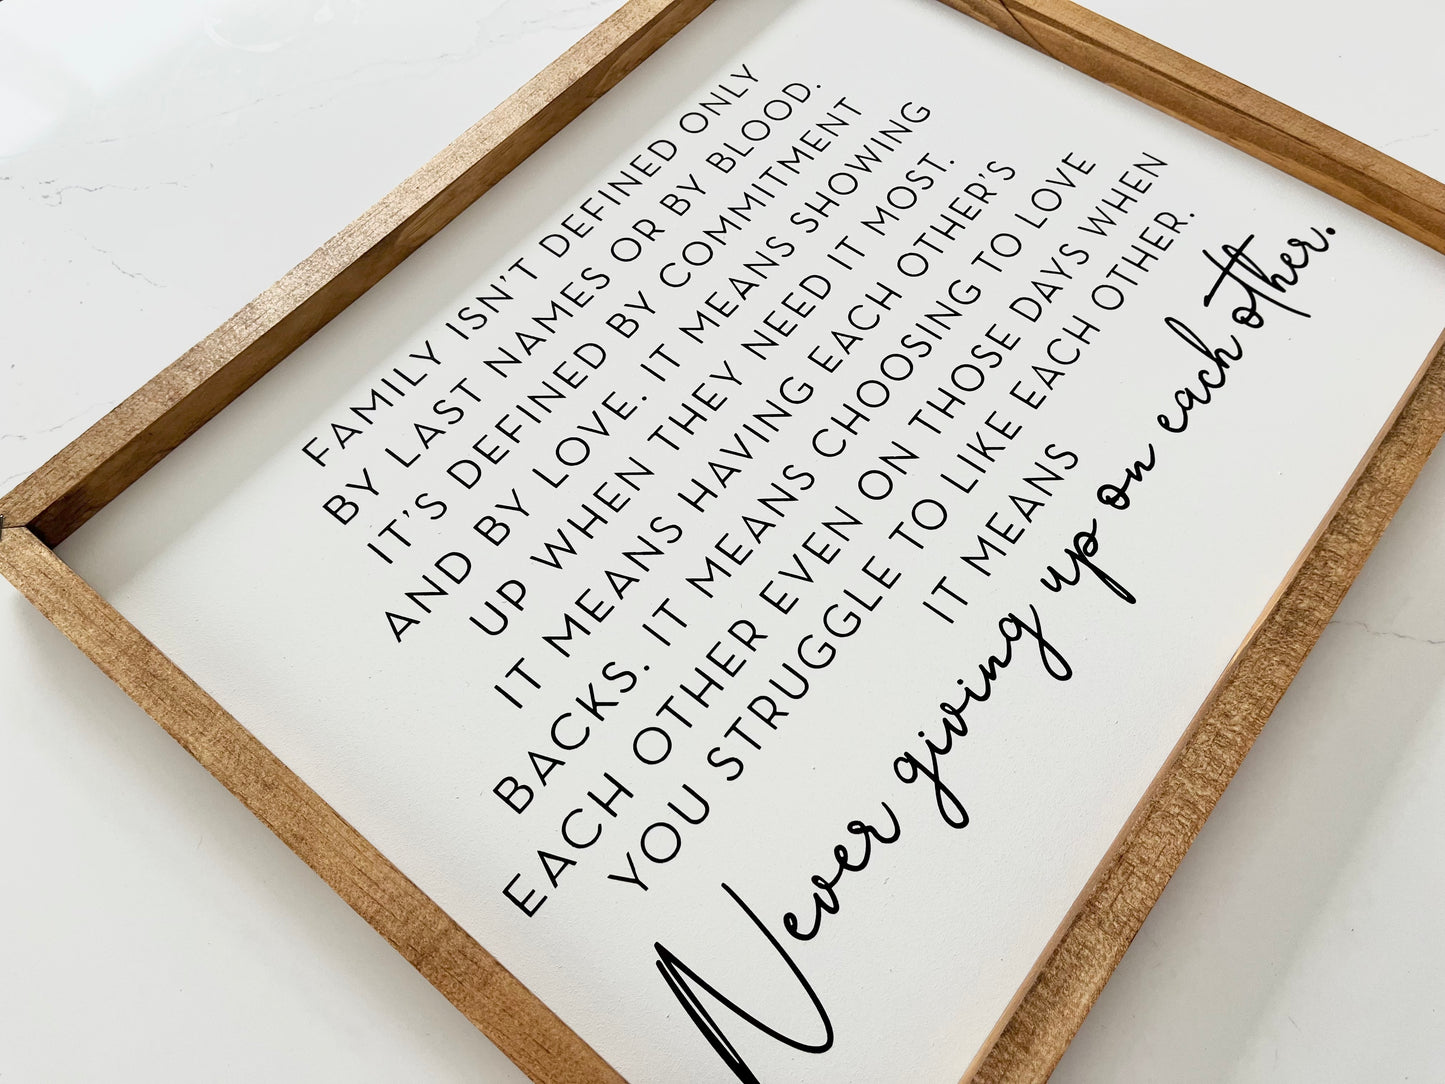 FAMILY ISN'T DEFINED ONLY
BY LAST NAMES OR BY BLOOD.
IT'S DEFINED BY COMMITMENT
AND BY LOVE. IT MEANS SHOWING
UP WHEN THEY NEED IT MOST.
IT MEANS HAVING EACH OTHER'S
BACKS. IT MEANS CHOOSING TO LOVE
EACH OTHER EVEN ON THOSE DAYS WHEN
YOU STRUGGLE TO LIKE EACH OTHER.
IT MEANS
Never giving up on each other.